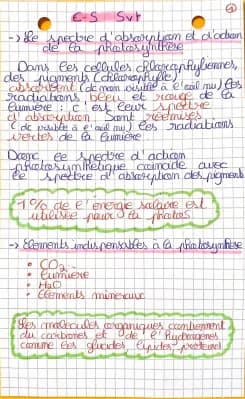 E-S Svt
①
-> Le spectre d'absorption et d'action
de la photosynthèse
Dans les cellules chlorophyliennes,
des pigments (chlorophylle)
absorbent (dc non visible à l'œil nu) les
radiations bleu et rouge de la
lumière : c'est leur spectre
d'absorption. Sont réémises
(dc visible à l'œil nu) les radiations
vertes de la lumière
Donc le spectre d'action
photosynthétique coïncide avec
le spectre d'absorption des pigments
1% de l'énergie solaire est
utilisée pour la photos.
-> Elements indispensables à la photosynthèse
• CO2
• Lumière
• H2O
• Elements mineraux
Les molécules organiques contiennent
du carbones et de l'hydrogènes
comme les glucides lipides protéines